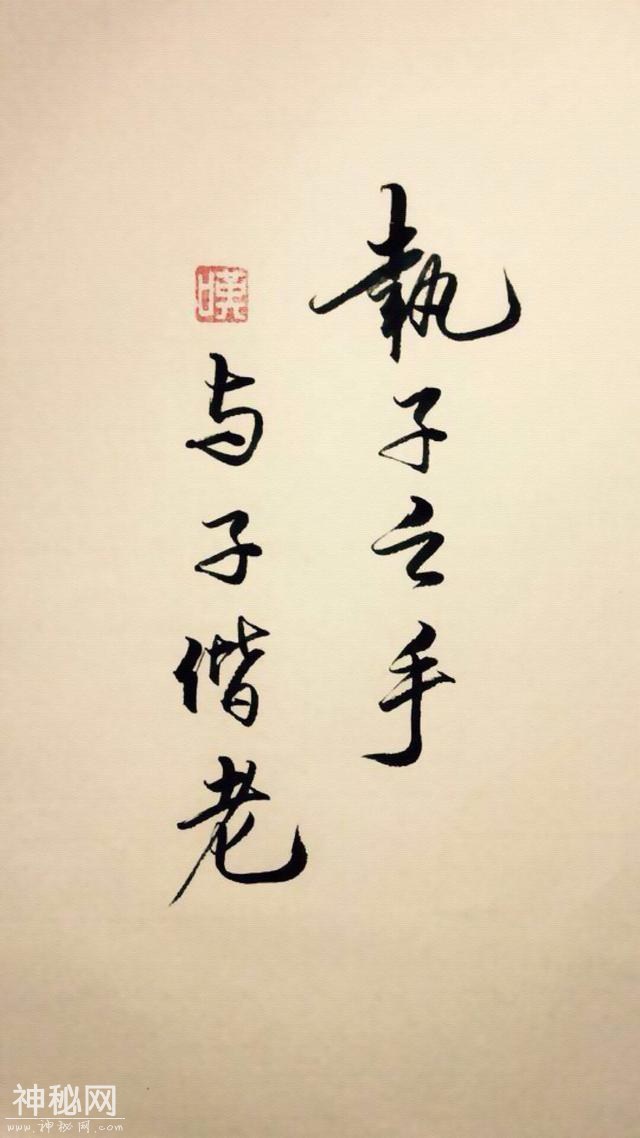 執子之手
与子偕老
神秘网
www.神秘网.com